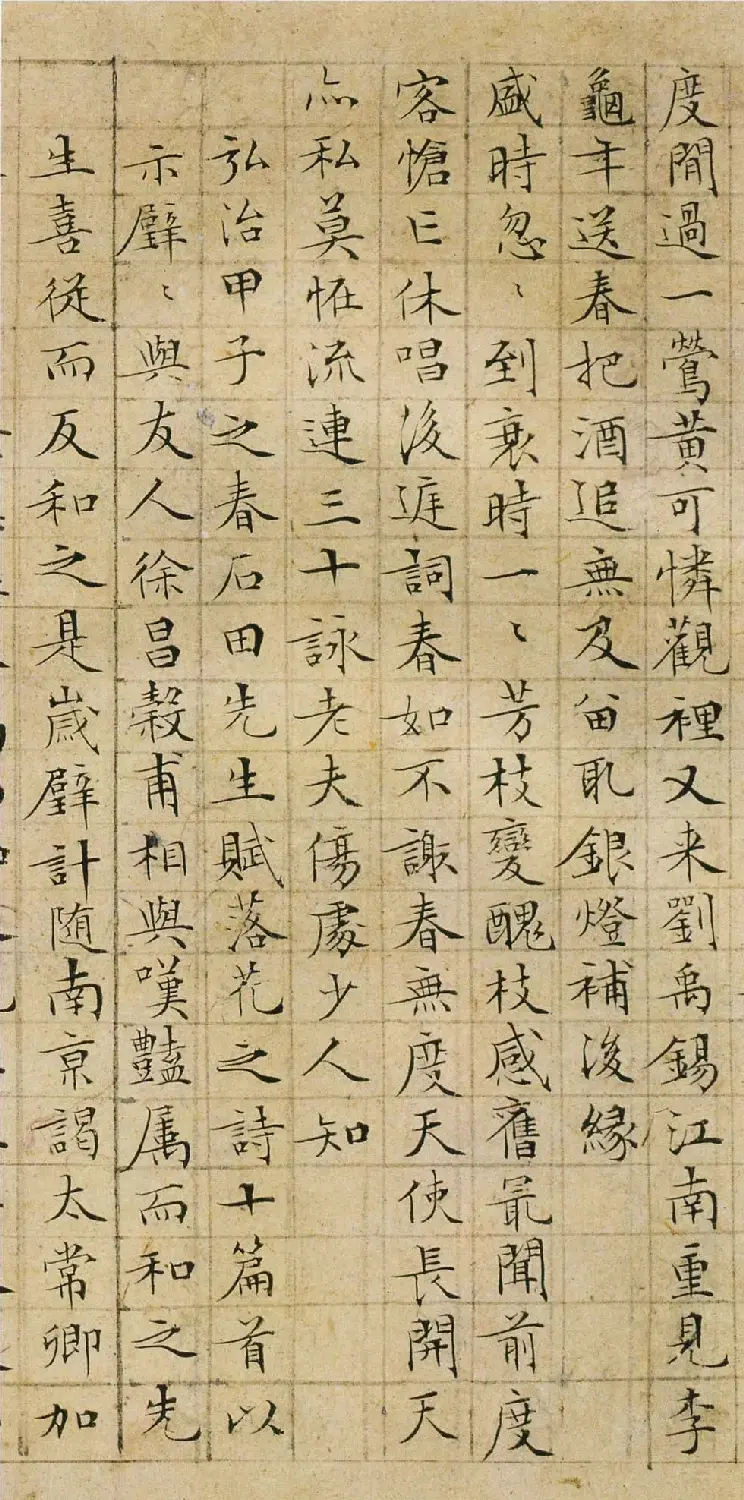 度閒過一鶯黃可憐觀裡又来劉禹錫江南重見李
龜年送春把酒追無及留取銀燈補後緣
盛時忽〻到衰時一〻芳枝變醜枝感舊最聞前度
客愴亡休唱後庭詞春如不謝春無度天使長開天
亦私莫怪流連三十詠老夫傷處少人知
弘治甲子之春石田先生賦落花之詩十篇首以
示璧〻與友人徐昌穀甫相與嘆豔属而和之先
生喜從而反和之是歲璧計随南京謁太常卿加